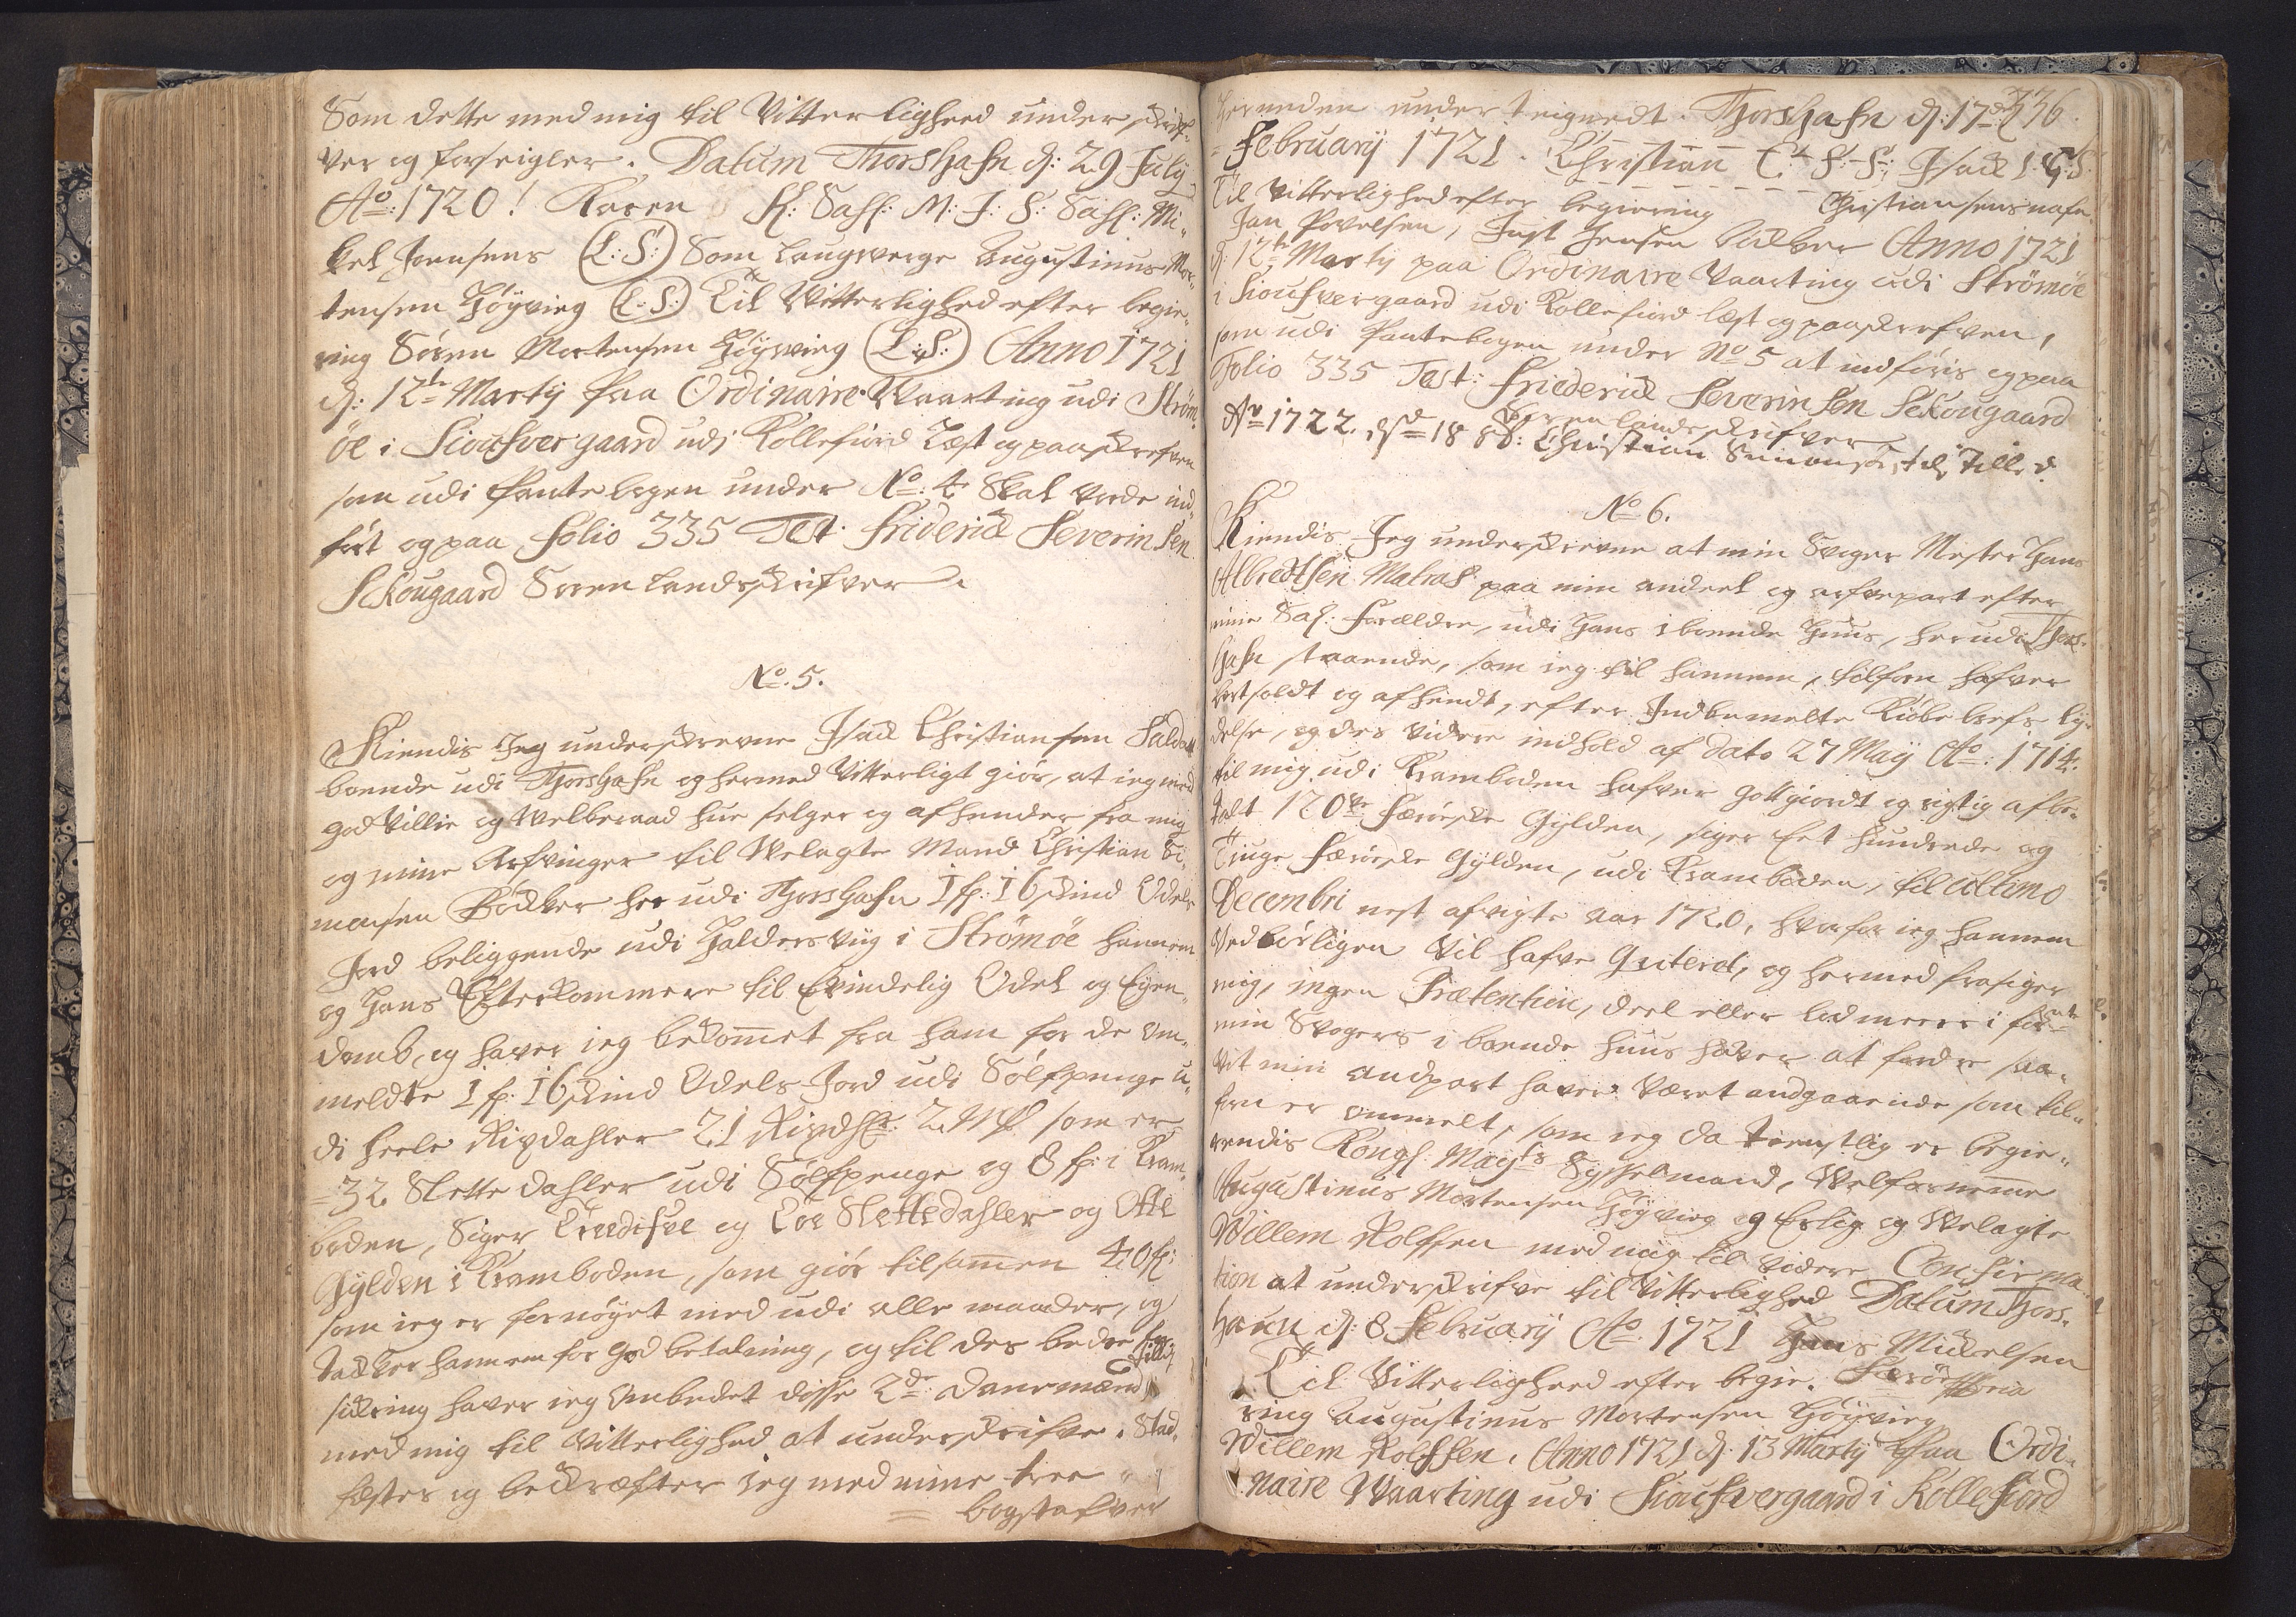 Som dette med mig til Vitterligheed underskrif-
ver og forseigler. Datum Thorshafn d: 29 July
Ao: 1720! Karen K: Sahl: M: J: S: Sahl: Mi-
kel Joensens (L:S:) Som Laugverge Augustinus Mor-
tensen Høyvieg (L:S:) Til Vitterlighed efter begie-
ring Sören Mortensen Høyvieg (L:S:) Anno 1721
d: 12te Marty paa Ordinaire Vaarting udi Ström-
öe i Sioufvergaard udi Kollefiord Læst og paaskrefven
som udi Pantebogen under No: 4 Skal vorde ind-
fört og paa Folio 335 Test. Friderick Severinsen
Schougaard Soren landskrifver.
No. 5.
Kiendis Jeg underskrevne Isack Christiansen Saldat
boende udi Thorshafn og hermed Vitterligt giör, at ieg med
god Villie og Velberaad hue selger og afhender fra mig
og mine Arfvinger til Velagte Mand Christian Si-
monsen Bödker her udi Thorshafn 1 f: 16 skind Odels
Jord beliggende udi Haldersviig i Strömöe hannem
og Hans Efterkommere til Evindelig Odel og Eyen-
domb, og haver ieg bekommet fra ham for de om-
meldte 1 f: 16 skind Odels Jord udi Sölfpenge u-
di heele Rixdahler 21 Rixdlr: 2 Mk som er
= 32 Slette dahler udi Sölfpenge og 8 f: i Kram-
boden, Siger Tredifve og Toe Slettedahler og Otte
Gylden i Kramboden, som giör tilsammen 40 f:
som ieg er fornöyet med udi alle maader, og
tacker hannem for god betalning, og til des bedre for-
sickring haver ieg Ombedet disse 2de dannemænd
med mig til Vitterlighed at underskrifve. Stad-
fester og bekræfter ieg med mine tree
= bogstafver
336.
herunden under teignedt. Thorshafn d: 17de
= February 1721. Christian C: S: S: Isack I. C. S.
Til Vitterlighed efter begiering Christiansens nafn.
Jan Povelsen, Just Jensen Anno 1721
d: 12te Marty paa Ordinaire Vaarting udi Strömöe
i Sioufvergaard udi Kollefiord læst og paaskrefven,
som udi Pantebogen under No 5 at indföris og paa
Folio 335 Test: Friederick Severinsen Schougaard
Soren landskrifver
Ao 1722. d 18 Christian Simonsen
No 6.
Kiendis Jeg underskrevne at min Svoger Mester Hans
Albredtsen Matras paa min andeel og arfvepart efter
mine Sal: Forældre, udi Hans iboende Huus, herudi Thors-
hafn staaende, som ieg til hannem, tilforn hafver
bortsoldt og afhendt, efter Indbemelte Kiöbebrefs liu-
delse, og des videre indhold af dato 27 May Ao: 1714.
til mig udi Kramboden hafver gottgiordt og rigtig afbe-
talt 120ve Færöiske Gylden, siger Eet hundrede og
Tiuge Færöeske Gylden, udi Kramboden, til ultimo
Decembri nest afvigte aar 1720, hvorfor ieg hannem
Vedbörligen Vil hafve Qviterdt, og hermed frasiger
mig, ingen Prætention, deel eller lod meere i for
min Svogers iboende huus haver at fordre saa-
vit min andpart haver været andgaaende som til-
forn er ommelt, som ieg da tienstlig er begie-
rendis Kongl: Mayts Sysselmand, Velfornemme
Augustinus Mortensen Höyvieg og Erlig og Velagte
Willem Rolfsen med mig til videre Confirma-
tion at underskrifve til Vitterlighed Datum Thors-
hafn d: 8 February Ao. 1721 Hans Mickelsen
Til Vitterligheed efter begie- Færöe
ring Augustinus Mortensen Höyvieg
Willem Rolfsen. Anno 1721 d: 13 Marty paa Ordi-
naire Vaarting udi Sioufvergaard i Kollefiord